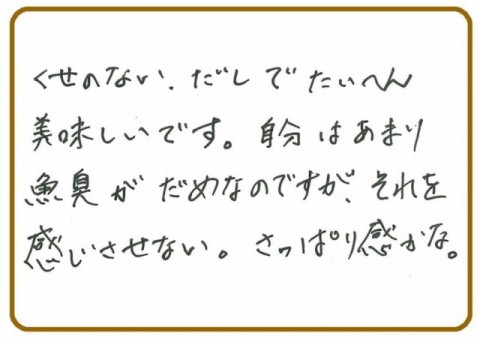 くせのない、だしでたいへん
美味しいです。自分はあまり
魚臭がだめなのですが、それを
感じさせない。さっぱり感かな。